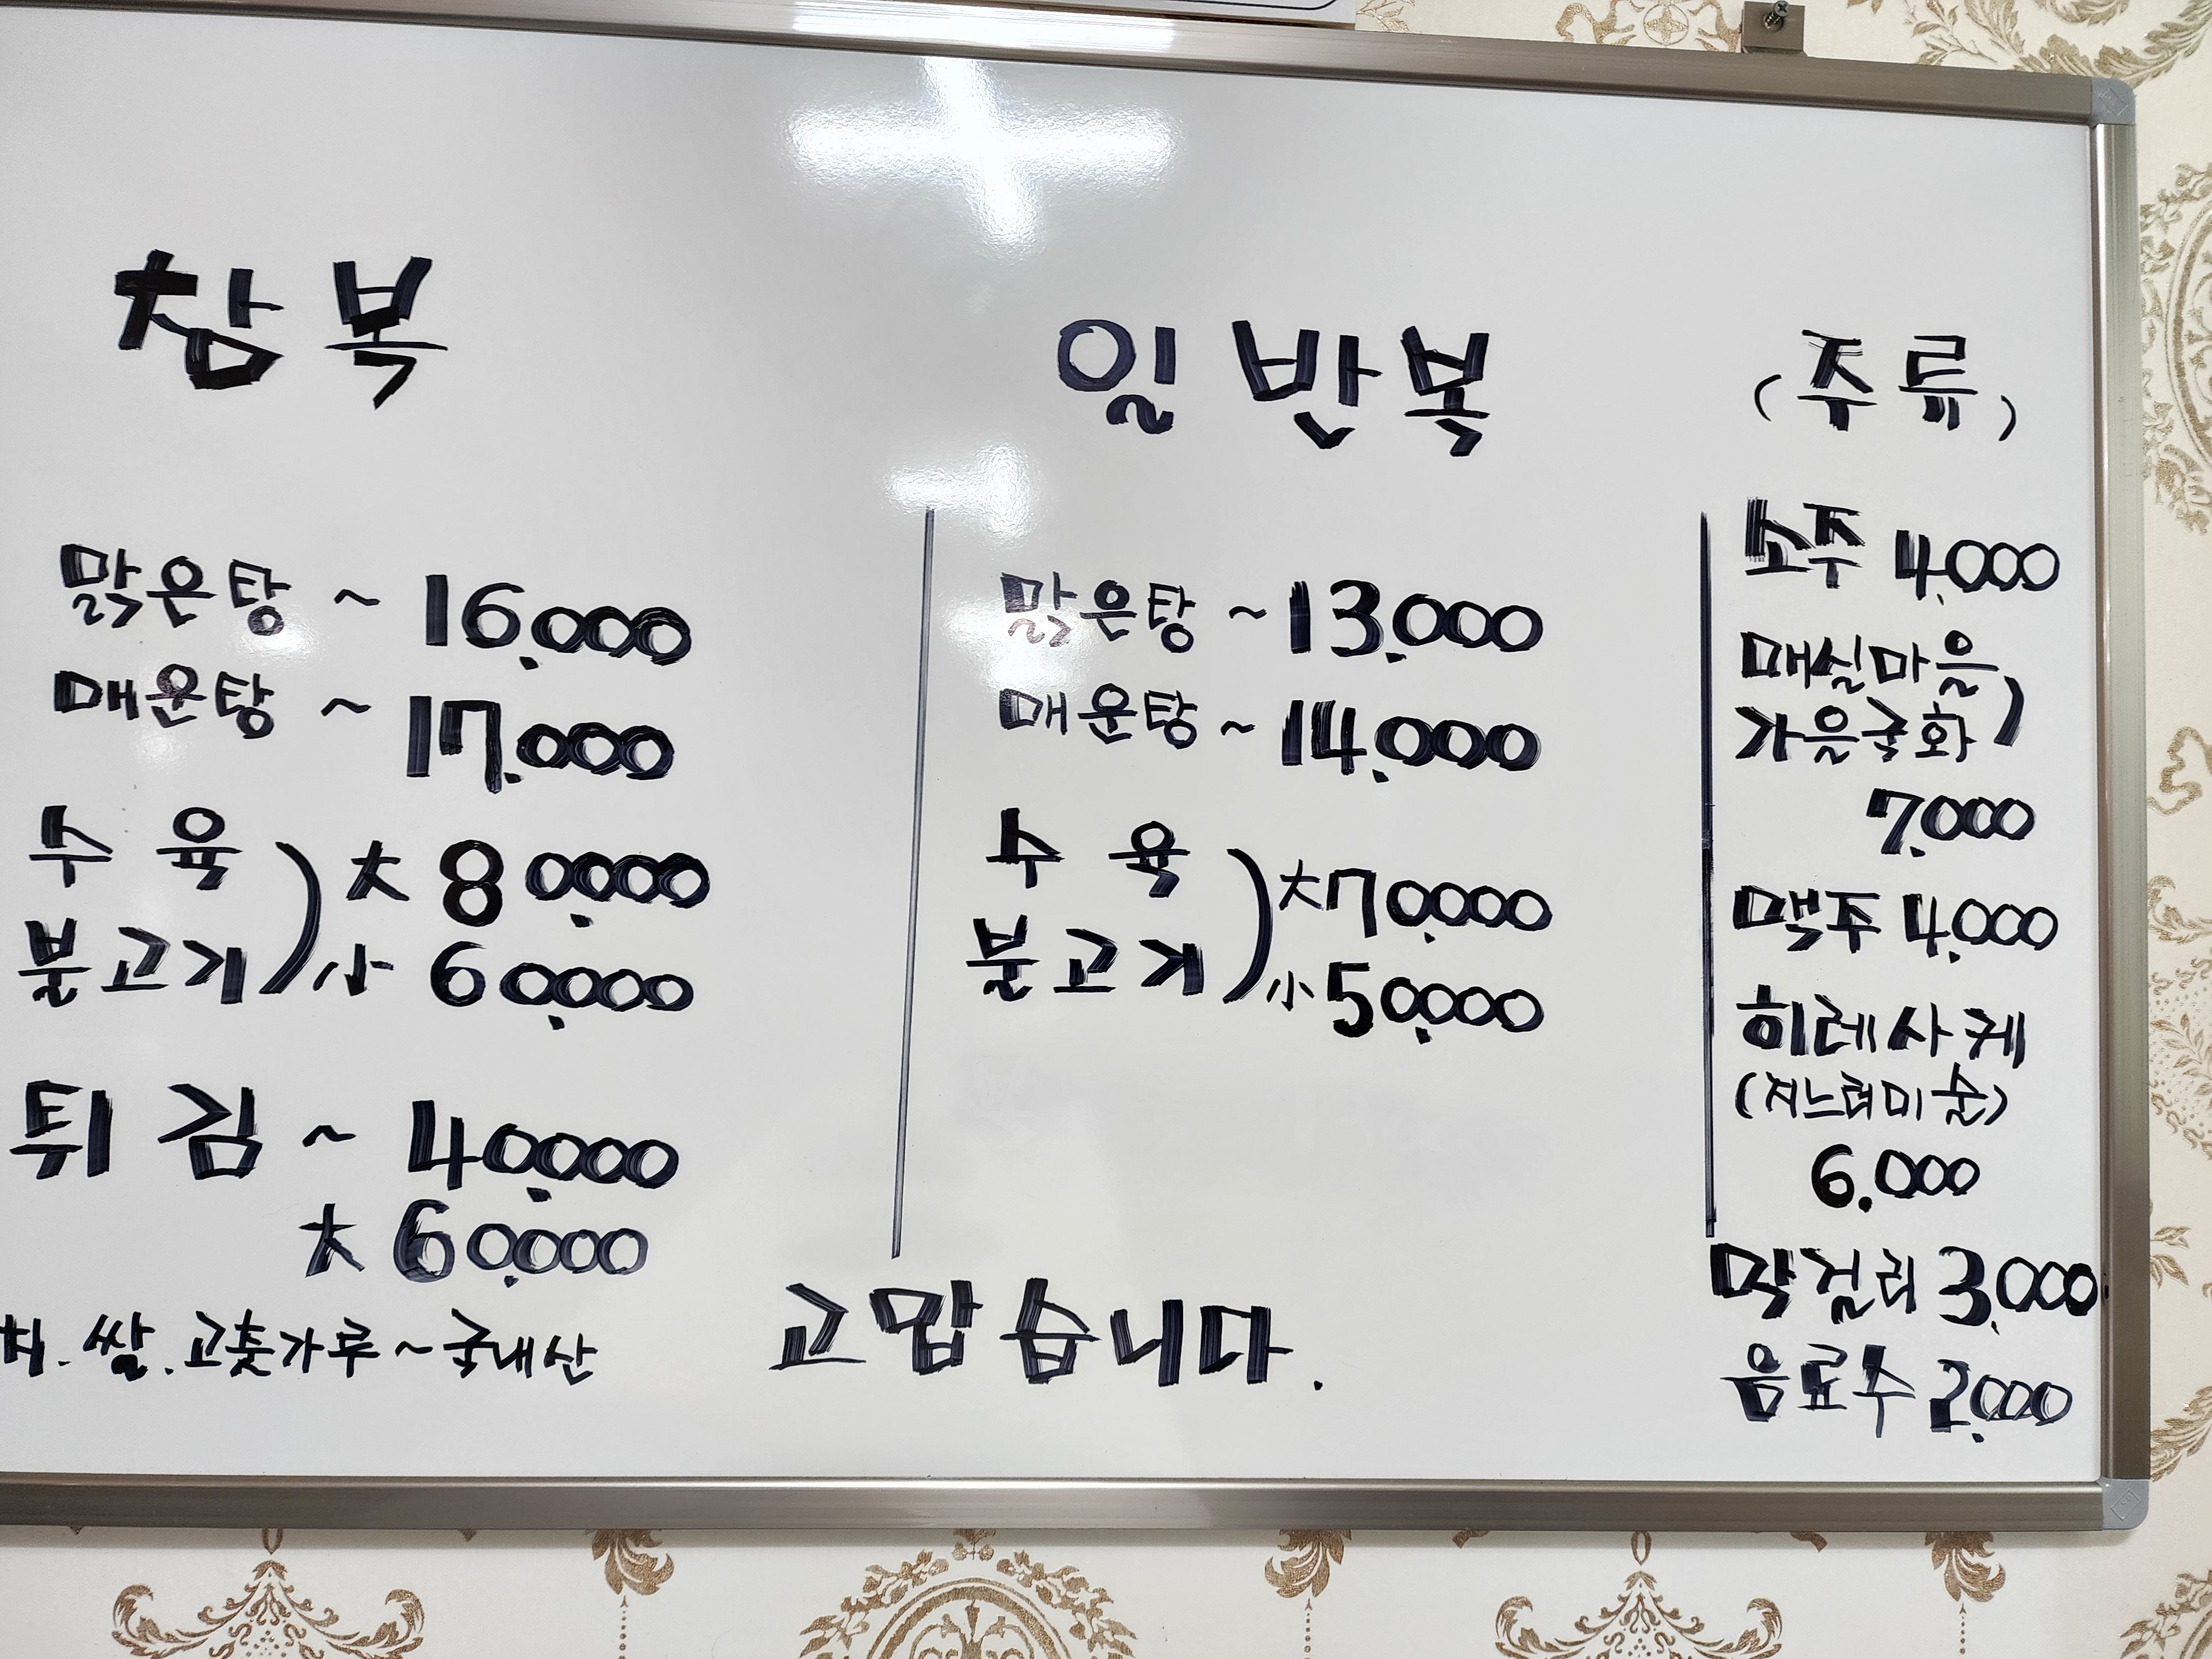 참복
맑은탕 ~ 16.000
매운탕 ~ 17.000
수육
불고기) 大 80.000
小 60.000
튀김 ~ 40.000
大 60.000
쌀. 고춧가루 ~ 국내산
일반복
맑은탕 ~ 13.000
매운탕 ~ 14.000
수육
불고기) 大 70.000
小 50.000
고맙습니다.
(주류)
소주 4.000
매실마을
가을국화)
7.000
맥주 4.000
히레사케
(지느러미술)
6.000
막걸리 3.000
음료수 2.000